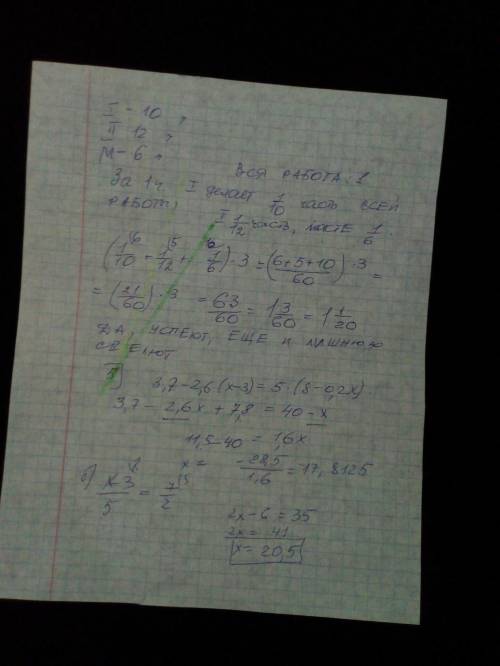 I - 10 ч
II 12 ч
М - 6 ч
ВСЯ РАБОТА: 1
За 1ч I делает 1/10 часть всей
работы, II 1/12 часть, 1/6
(1/10 + 1/12 + 1/6) · 3 = ((6+5+10)/60) · 3 =
= (21/60) · 3 = 63/60 = 1 3/60 = 1 1/20
ДА, УСПЕЮТ, ЕЩЕ И ЛИШНЮЮ
СДЕЛЮТ
3,7 - 2,6(x-3) = 5·(8-0,2x)
3,7 - 2,6x + 7,8 = 40 - x
11,5 - 40 = 1,6x
x = -28,5/1,6 = 17,8125
б) (x-3)/5 = 7/2
2x - 6 = 35
2x = 41
x = 20,5